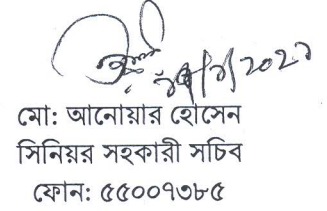 মো: আনোয়ার হোসেন
সিনিয়র সহকারী সচিব
ফোন: ৫৫০০৭৩৮৫